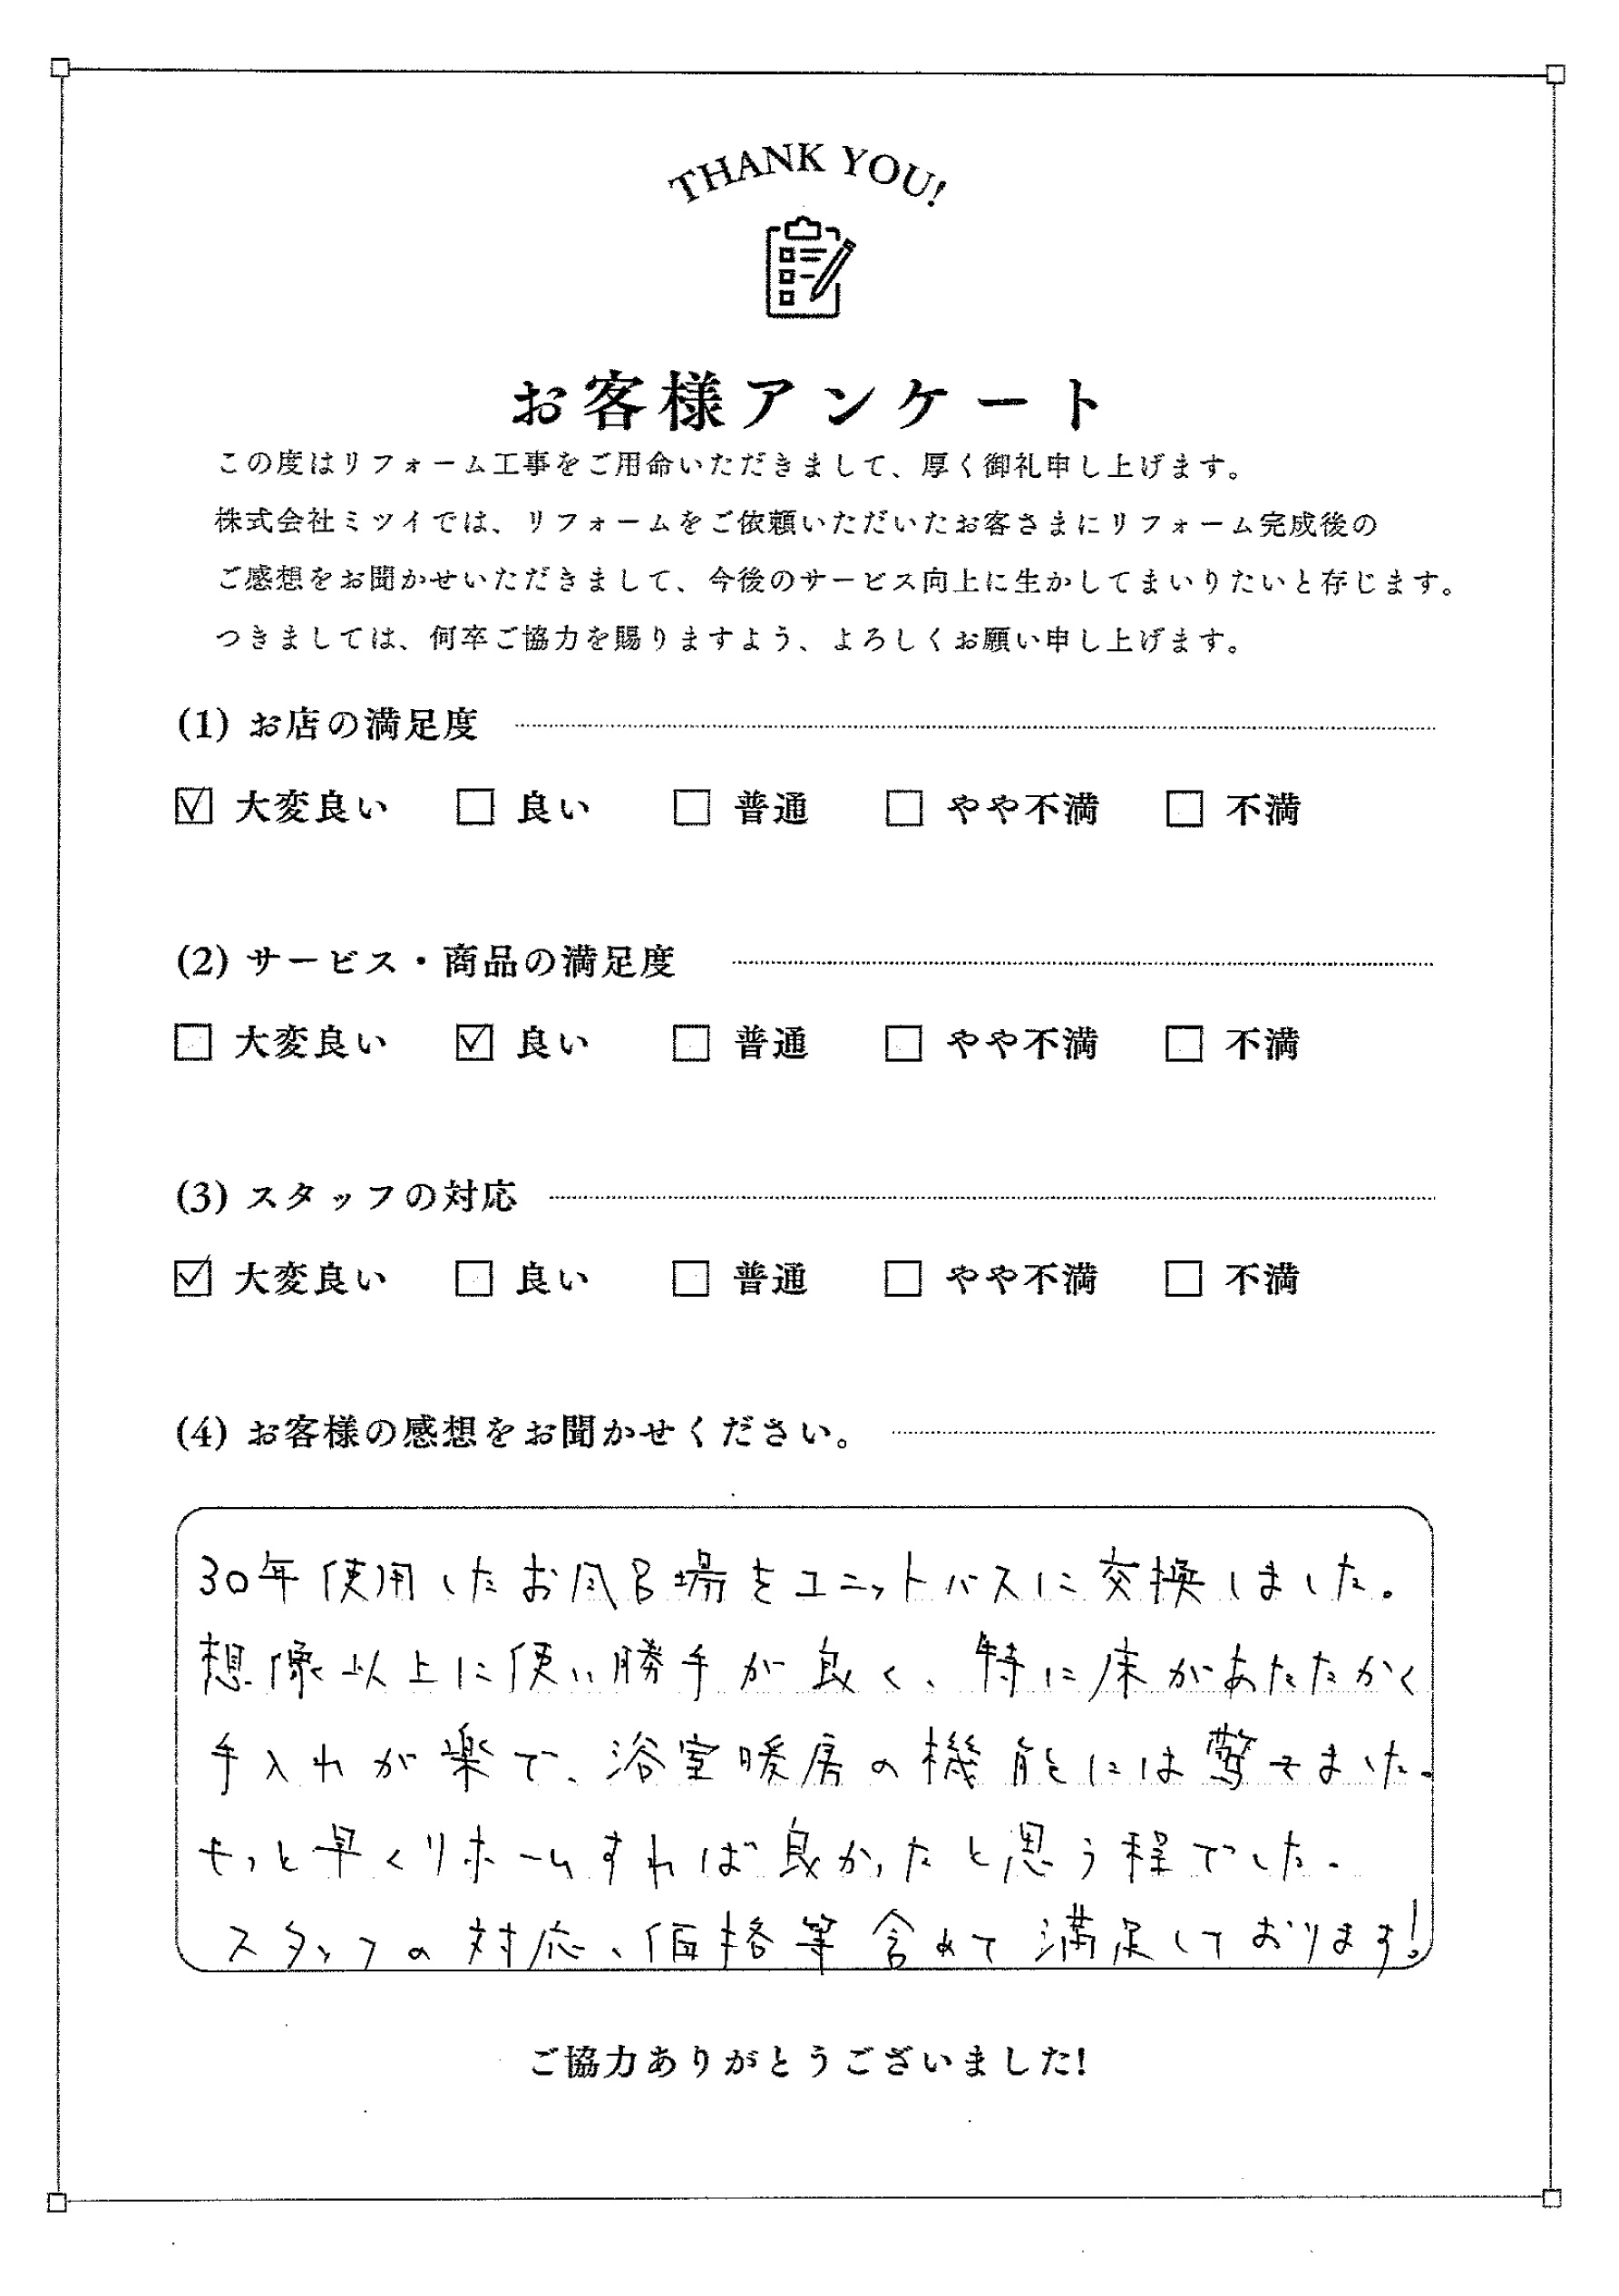 THANK YOU!
お客様アンケート
この度はリフォーム工事をご用命いただきまして、厚く御礼申し上げます。
株式会社ミツイでは、リフォームをご依頼いただいたお客さまにリフォーム完成後の
ご感想をお聞かせいただきまして、今後のサービス向上に生かしてまいりたいと存じます。
つきましては、何卒ご協力を賜りますよう、よろしくお願い申し上げます。
(1) お店の満足度
☑ 大変良い ☐ 良い ☐ 普通 ☐ やや不満 ☐ 不満
(2) サービス・商品の満足度
☐ 大変良い ☑ 良い ☐ 普通 ☐ やや不満 ☐ 不満
(3) スタッフの対応
☑ 大変良い ☐ 良い ☐ 普通 ☐ やや不満 ☐ 不満
(4) お客様の感想をお聞かせください。
30年使用したお風呂場をユニットバスに交換しました。
想像以上に使い勝手が良く、特に床があたたかく
手入れが楽で、浴室暖房の機能には驚きました。
もっと早くリホームすれば良かったと思う程でした。
スタッフの対応、価格等含めて満足しております!
ご協力ありがとうございました!